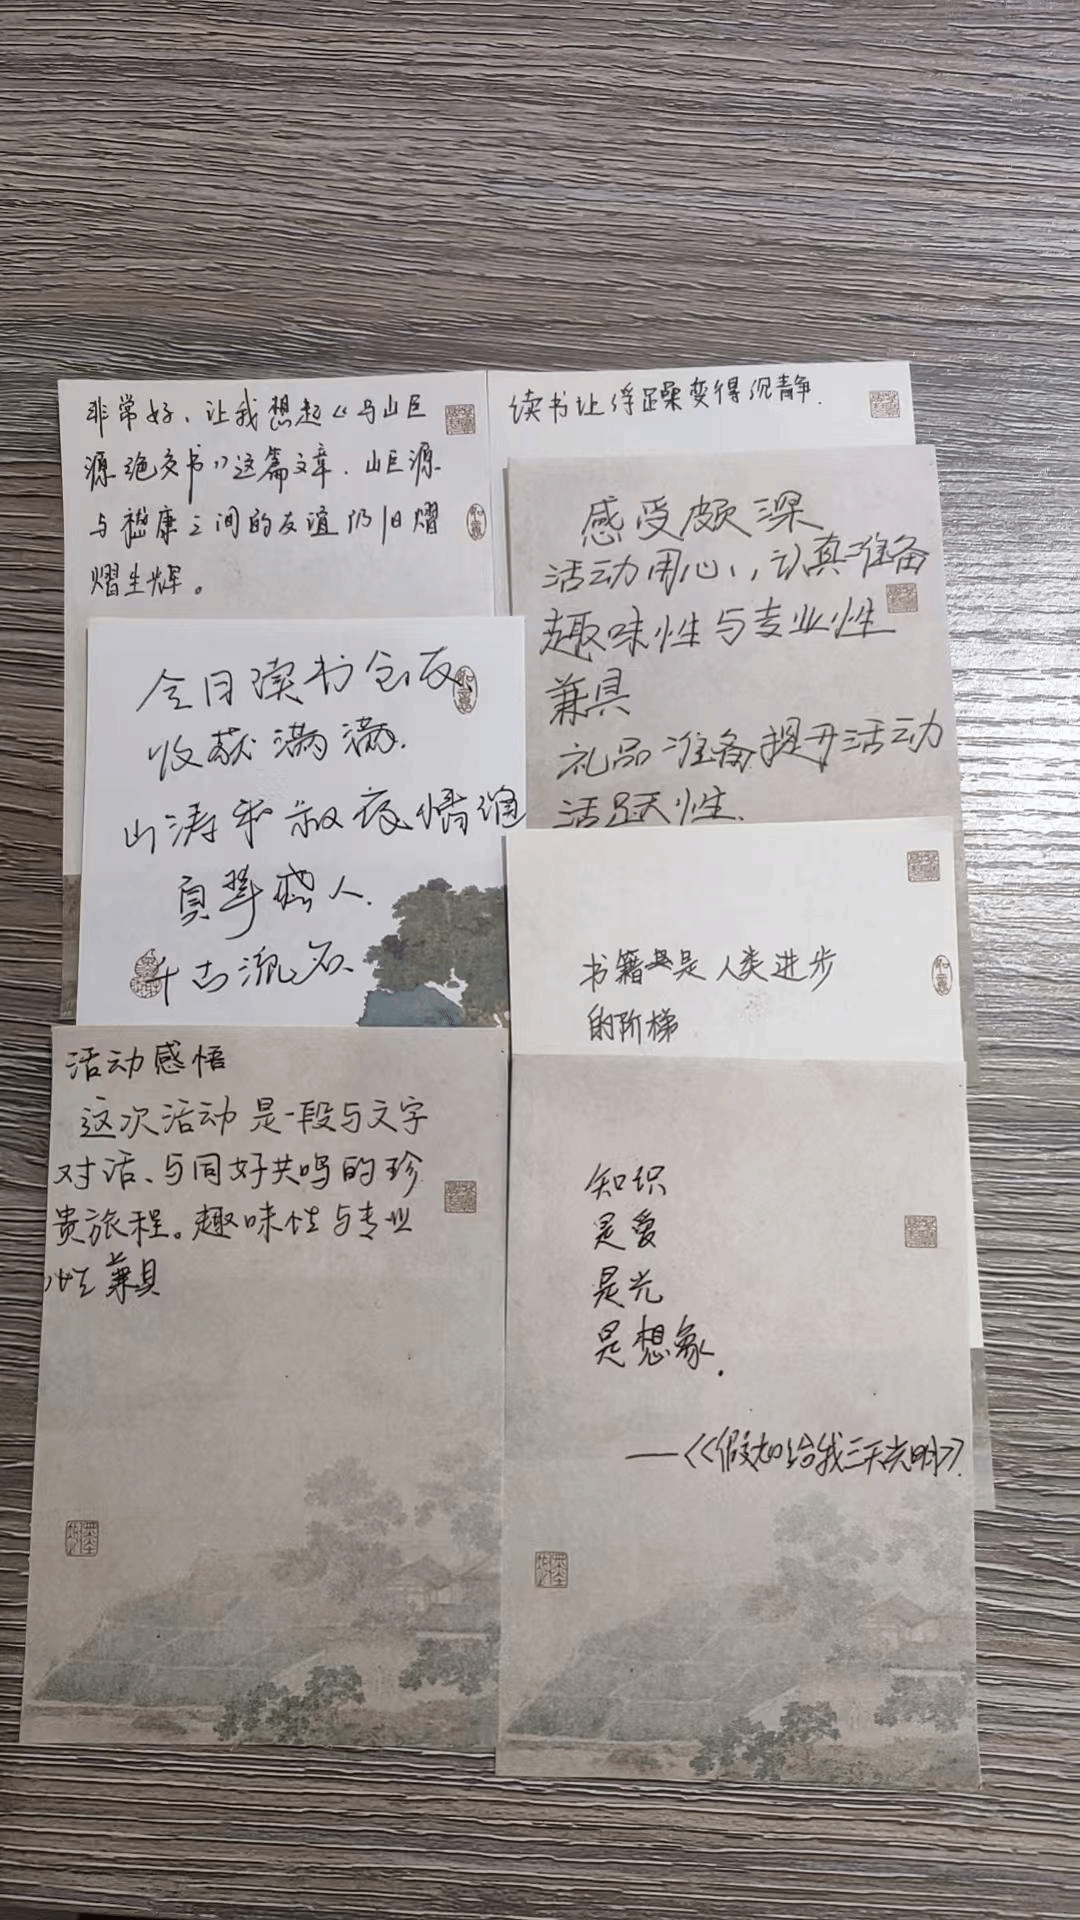 非常好，让我想起《与山巨
源绝交书》这篇文章．山巨源
与嵇康之间的友谊仍旧熠
熠生辉。
读书让浮躁变得沉静．
感受颇深
活动用心，认真准备
趣味性与专业性
兼具
礼品准备提升活动
活跃性．
今日读书会友
收获满满．
山涛和叔夜情谊
真挚感人．
千古流名．
书籍是人类进步
的阶梯
活动感悟
这次活动是一段与文字
对话、与同好共鸣的珍
贵旅程。趣味性与专业
性兼具
知识
是爱
是光
是想象．
——《假如给我三天光明》．
如意